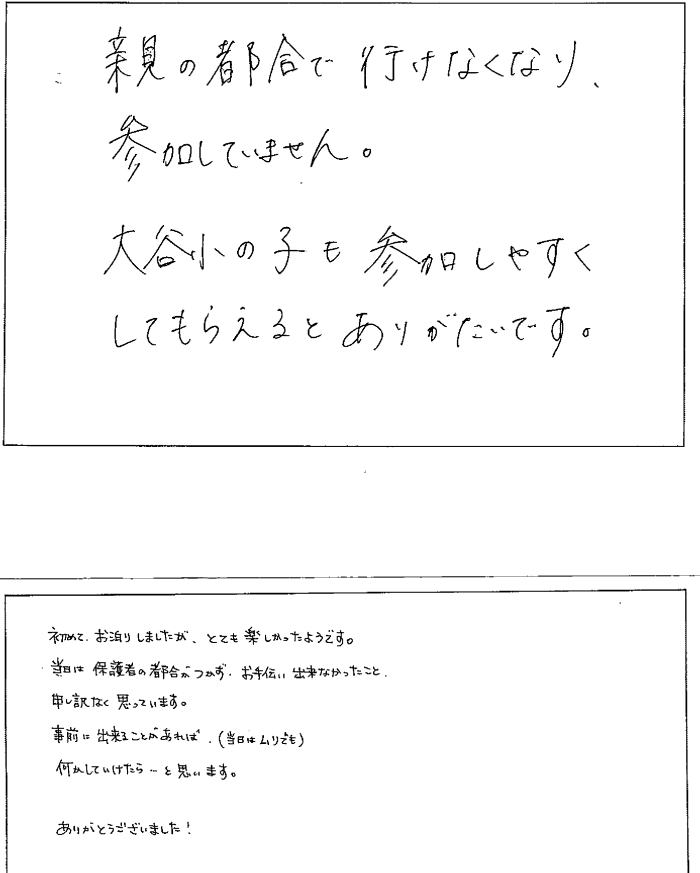 親の都合で行けなくなり、
参加していません。
大谷小の子も参加しやすく
してもらえるとありがたいです。
初めて、お泊りしましたが、とても楽しかったようです。
当日は保護者の都合がつかず、お手伝い出来なかったこと、
申し訳なく思っています。
事前に出来ることがあれば、(当日はムリでも)
何かしていけたら…と思います。
ありがとうございました!